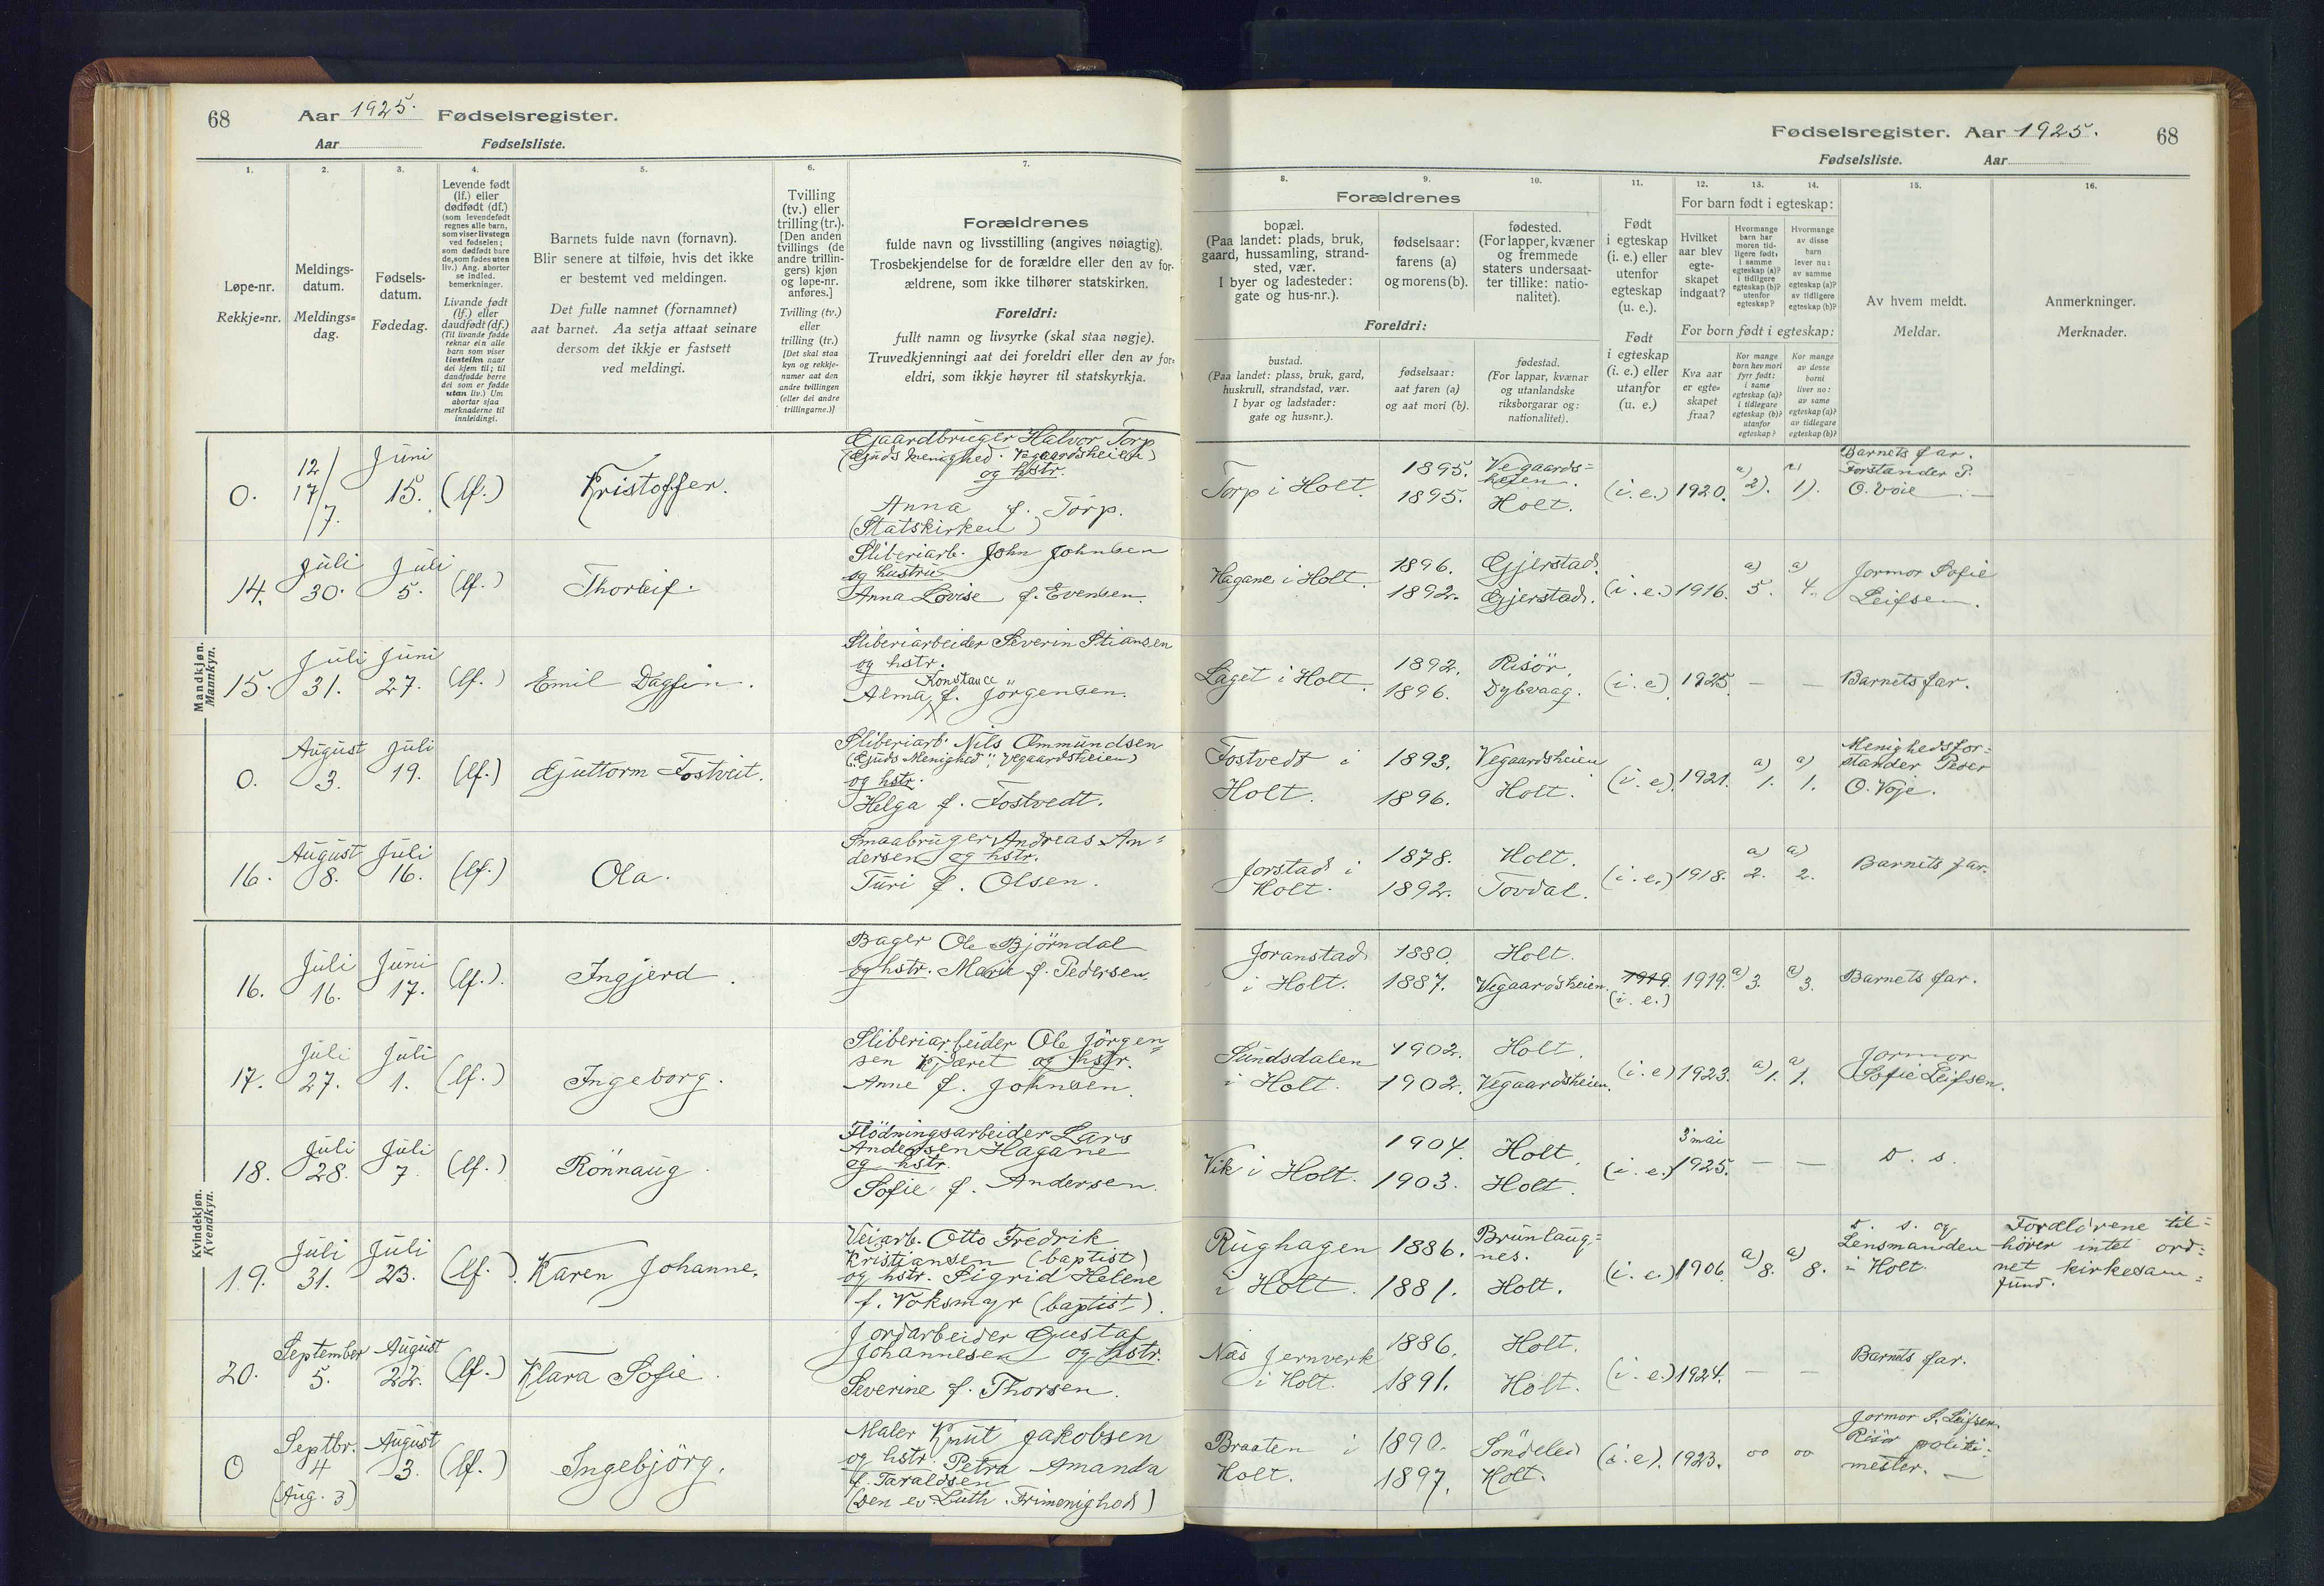 68
Aar 1925. Fødselsregister.
Aar Fødselsliste.
Fødselsregister. Aar 1925. 68
Fødselsliste. Aar
1.
Løpe-nr.
Rekkje=nr.
2.
Meldings-
datum.
Meldings=
dag.
3.
Fødsels-
datum.
Fødedag.
4.
Levende født
(lf.) eller
dødfødt (df.)
(som levendefødt
regnes alle barn,
som viser livstegn
ved fødselen;
som dødfødt bare
de, som fødes uten
liv.) Ang. aborter
se indled.
bemerkninger.
Livande født
(lf.) eller
daudfødt (df.)
(Til livande fødde
reknar ein alle
barn som viser
livsteikn naar
dei kjem til; til
daudfødde berre
dei som er fødde
utan liv.) Um
abortar sjaa
merknaderne til
innleidingi.
5.
Barnets fulde navn (fornavn).
Blir senere at tilføie, hvis det ikke
er bestemt ved meldingen.
Det fulle namnet (fornamnet)
aat barnet. Aa setja attaat seinare
dersom det ikkje er fastsett
ved meldingi.
6.
Tvilling
(tv.) eller
trilling (tr.).
[Den anden
tvillings (de
andre trillin-
gers) kjøn
og løpe-nr.
anføres.]
Tvilling (tv.)
eller
trilling (tr.)
[Det skal staa
kyn og rekkje-
numer aat den
andre tvillingen
(eller dei andre
trillingarne.)]
7.
Forældrenes
fulde navn og livsstilling (angives nøiagtig).
Trosbekjendelse for de forældre eller den av for-
ældrene, som ikke tilhører statskirken.
Foreldri:
fullt namn og livsyrke (skal staa nøgje).
Truvedkjenningi aat dei foreldri eller den av for-
eldri, som ikkje høyrer til statskyrkja.
8.
Forældrenes
bopæl.
(Paa landet: plads, bruk,
gaard, hussamling, strand-
sted, vær.
I byer og ladesteder:
gate og hus-nr.).
Foreldri:
bustad.
(Paa landet: plass, bruk, gard,
huskrull, strandstad, vær.
I byar og ladstader:
gate og hus=nr.).
9.
fødselsaar:
farens (a)
og morens (b).
fødselsaar:
aat faren (a)
og aat mori (b).
10.
fødested.
(For lapper, kvæner
og fremmede
staters undersaat-
ter tillike: natio-
nalitet).
fødestad.
(For lappar, kvænar
og utanlandske
riksborgarar og:
nationalitet).
11.
Født
i egteskap
(i. e.) eller
utenfor
egteskap
(u. e.).
Født
i egteskap
(i. e.) eller
utanfor
(u. e.)
12. 13. 14.
For barn født i egteskap:
Hvilket
aar blev
egte-
skapet
indgaat?
Hvormange
barn har
moren tid-
ligere født:
i samme
egteskap (a)?
i tidligere
egteskap (b)?
utenfor
egteskap?
Hvormange
av disse
barn
lever nu:
av samme
egteskap (a)?
av tidligere
egteskap (b)?
For born født i egteskap:
Kva aar
er egte=
skapet
fraa?
Kor mange
born hev mori
fyrr født:
i same
egteskap (a)?
i tidlegare
egteskap (b)?
utanfor
egteskap?
Kor mange
av desse
borni
liver no:
av same
egteskap (a)?
av tidlegare
egteskap (b)?
15.
Av hvem meldt.
Meldar.
16.
Anmerkninger.
Merknader.
Mandkjøn.
Mannkyn.
0. 12/17/7. Juni 15. (lf.) Kristoffer.
Gaardbruger Halvor Torp
(Guds menighed. Vegaardsheien)
og hstr.
Anna f. Torp.
(Statskirken)
Torp i Holt. 1895. Vegaards=
heien.
1895. Holt.
(i. e.) 1920. a) 2). a) 1).
Barnets far.
Forstander P.
O. Voie. —
14. Juli 30. Juli 5. (lf.) Thorleif.
Sliberiarb. John Johnsen
og hustru
Anna Lovise f. Evensen.
Hagane i Holt. 1896. Gjerstad.
1892. Gjerstad.
(i. e.) 1916. a) 5. a) 4.
Jormor Sofie
Leifsen.
15. Juli 31. Juni 27. (lf.) Emil Dagfin.
Sliberiarbeider Severin Stiansen
og hstr.
Konstance
Alma f. Jørgensen.
Laget i Holt. 1892. Risör.
1896. Dybvaag.
(i. e) 1925. — —
Barnets far.
0. August 3. Juli 19. (lf.) Guttorm Fostveit.
Sliberiarb. Nils Ommundsen
("Guds Menighed", Vegaardsheien)
og hstr.
Helga f. Fostvedt.
Fostvedt i
Holt. 1893. Vegaardsheien
1896. Holt.
(i. e). 1921. a) 1. a) 1.
Menighedsfor=
stander Peder
O. Voje.
16. August 8. Juli 16. (lf.) Ola.
Smaabruger Andreas An=
dersen og hstr.
Turi f. Olsen.
Jorstad i
Holt. 1878. Holt.
1892. Tovdal.
(i. e.) 1918. a) 2. a) 2.
Barnets far.
Kvindekjøn.
Kvendkyn.
16. Juli 16. Juni 17. (lf.). Ingjerd.
Bager Ole Bjørndal
og hstr. Marie f. Pedersen.
Joranstad
i Holt. 1880. Holt.
1887. Vegaardsheien.
1919. (i. e.) 1919. a) 3. a) 3.
Barnets far.
17. Juli 27. Juli 1. (lf.) Ingeborg.
Sliberiarbeider Ole Jörgen=
sen Kjæret og hstr.
Anne f. Johnsen.
Sundsdalen
i Holt. 1902. Holt.
1902. Vegaardsheien.
(i. e) 1923. a) 1. a) 1.
Jormor
Sofie Leifsen.
18. Juli 28. Juli 7. (lf.) Rönnaug.
Flödningsarbeider Lars
Andersen Hagane
og hstr.
Sofie f. Andersen.
Vik i Holt. 1904. Holt.
1903. Holt.
(i. e.) 3 mai 1925. — —
D. s.
19. Juli 31. Juli 23. (lf.). Karen Johanne.
Veiarb. Otto Fredrik
Kristiansen (baptist)
og hstr. Sigrid Helene
f. Voksmyr (baptist).
Rughagen
i Holt. 1886. Brunlaug=
nes.
1881. Holt.
(i. e.) 1906. a) 8. a) 8.
D. s. og
Lensmanden
i Holt.
Forældrene til=
hører intet ord=
net kirkesam=
fund.
20. September 5. August 22. (lf.) Klara Sofie.
Jordarbeider Gustaf
Johannesen og hstr.
Severine f. Thorsen.
Næs Jernverk
i Holt. 1886. Holt.
1891. Holt.
(i. e.) 1924. — —
Barnets far.
0 Septbr. 4 (Aug. 3) August 3. (lf.) Ingebjörg.
Maler Knut Jakobsen
og hstr. Petra Amanda
f. Taraldsen
(Den ev. Luth. Frimenighed)
Braaten i
Holt. 1890. Söndeled
1897. Holt.
(i. e). 1923. oo oo
Jormor S. Leifsen.
Risör politi=
mester. —